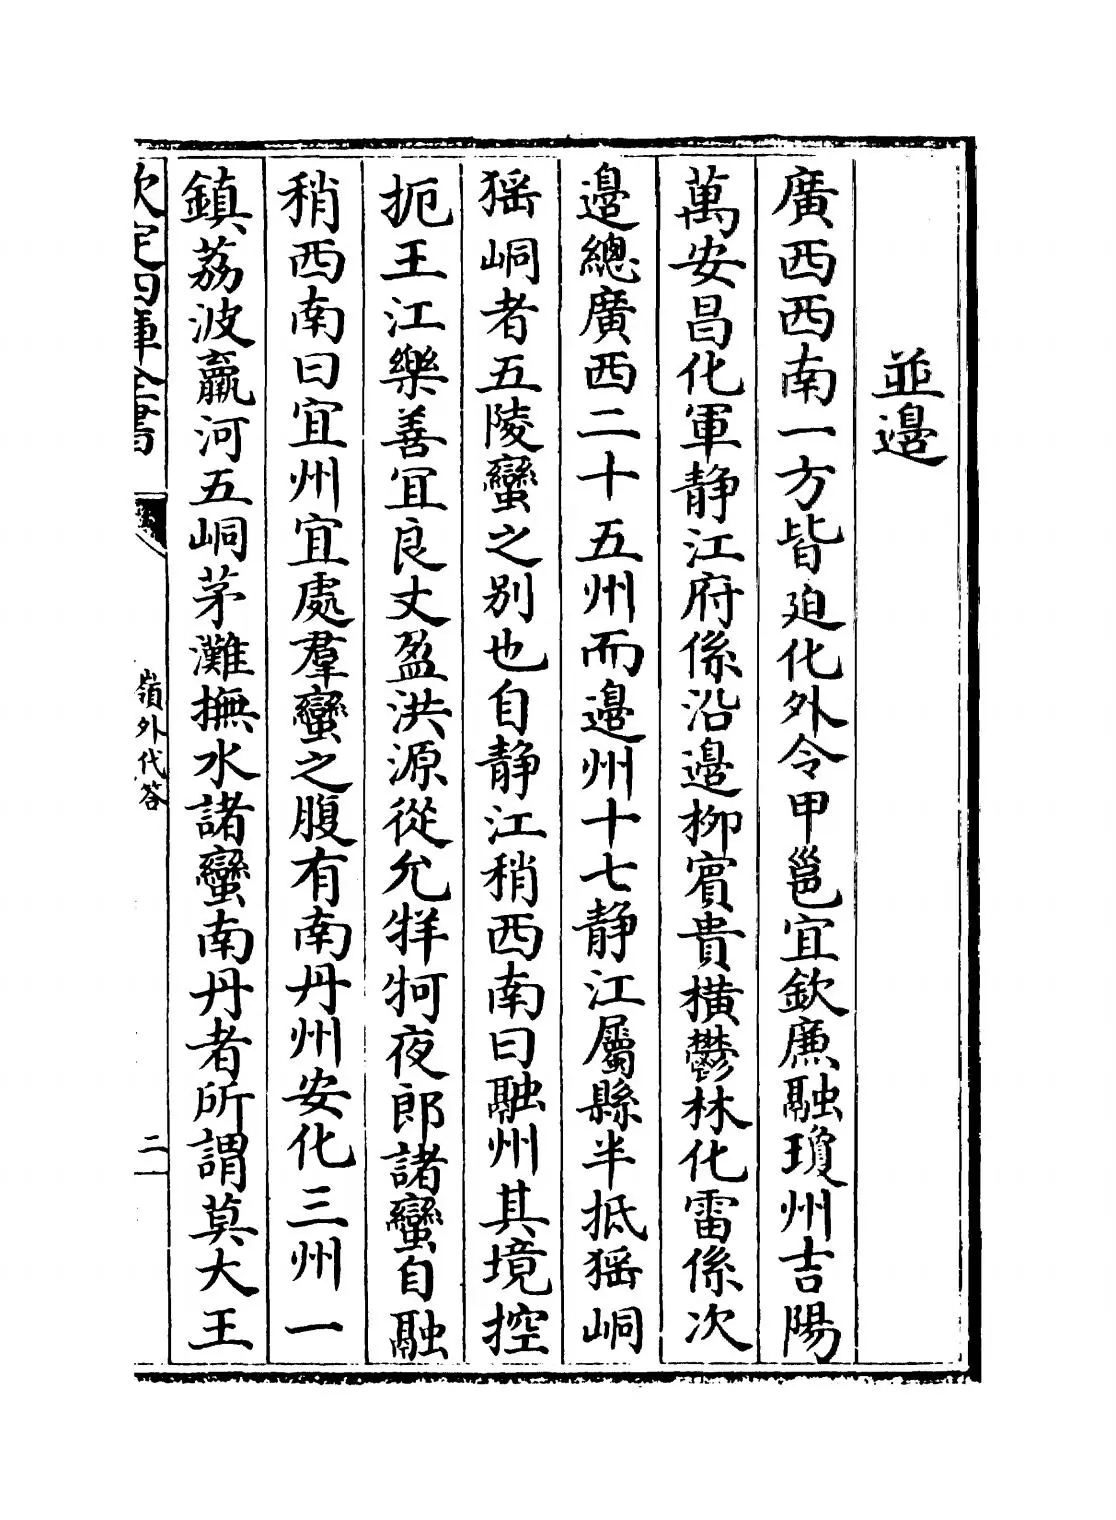 並邉
廣西西南一方皆廹化外令甲邕宜欽廉融瓊州吉陽
萬安昌化軍静江府係沿邉柳賔貴橫鬱林化雷係次
邉總廣西二十五州而邉州十七静江屬縣半抵猺峒
猺峒者五陵蠻之别也自静江稍西南曰融州其境控
扼王江樂善冝良丈盈洪源從允牂牁夜郎諸蠻自融
稍西南曰宜州宜處羣蠻之腹有南丹州安化三州一
鎮荔波臝河五峒茅灘撫水諸蠻南丹者所謂莫大王
欽定四庫全書
嶺外代答
二